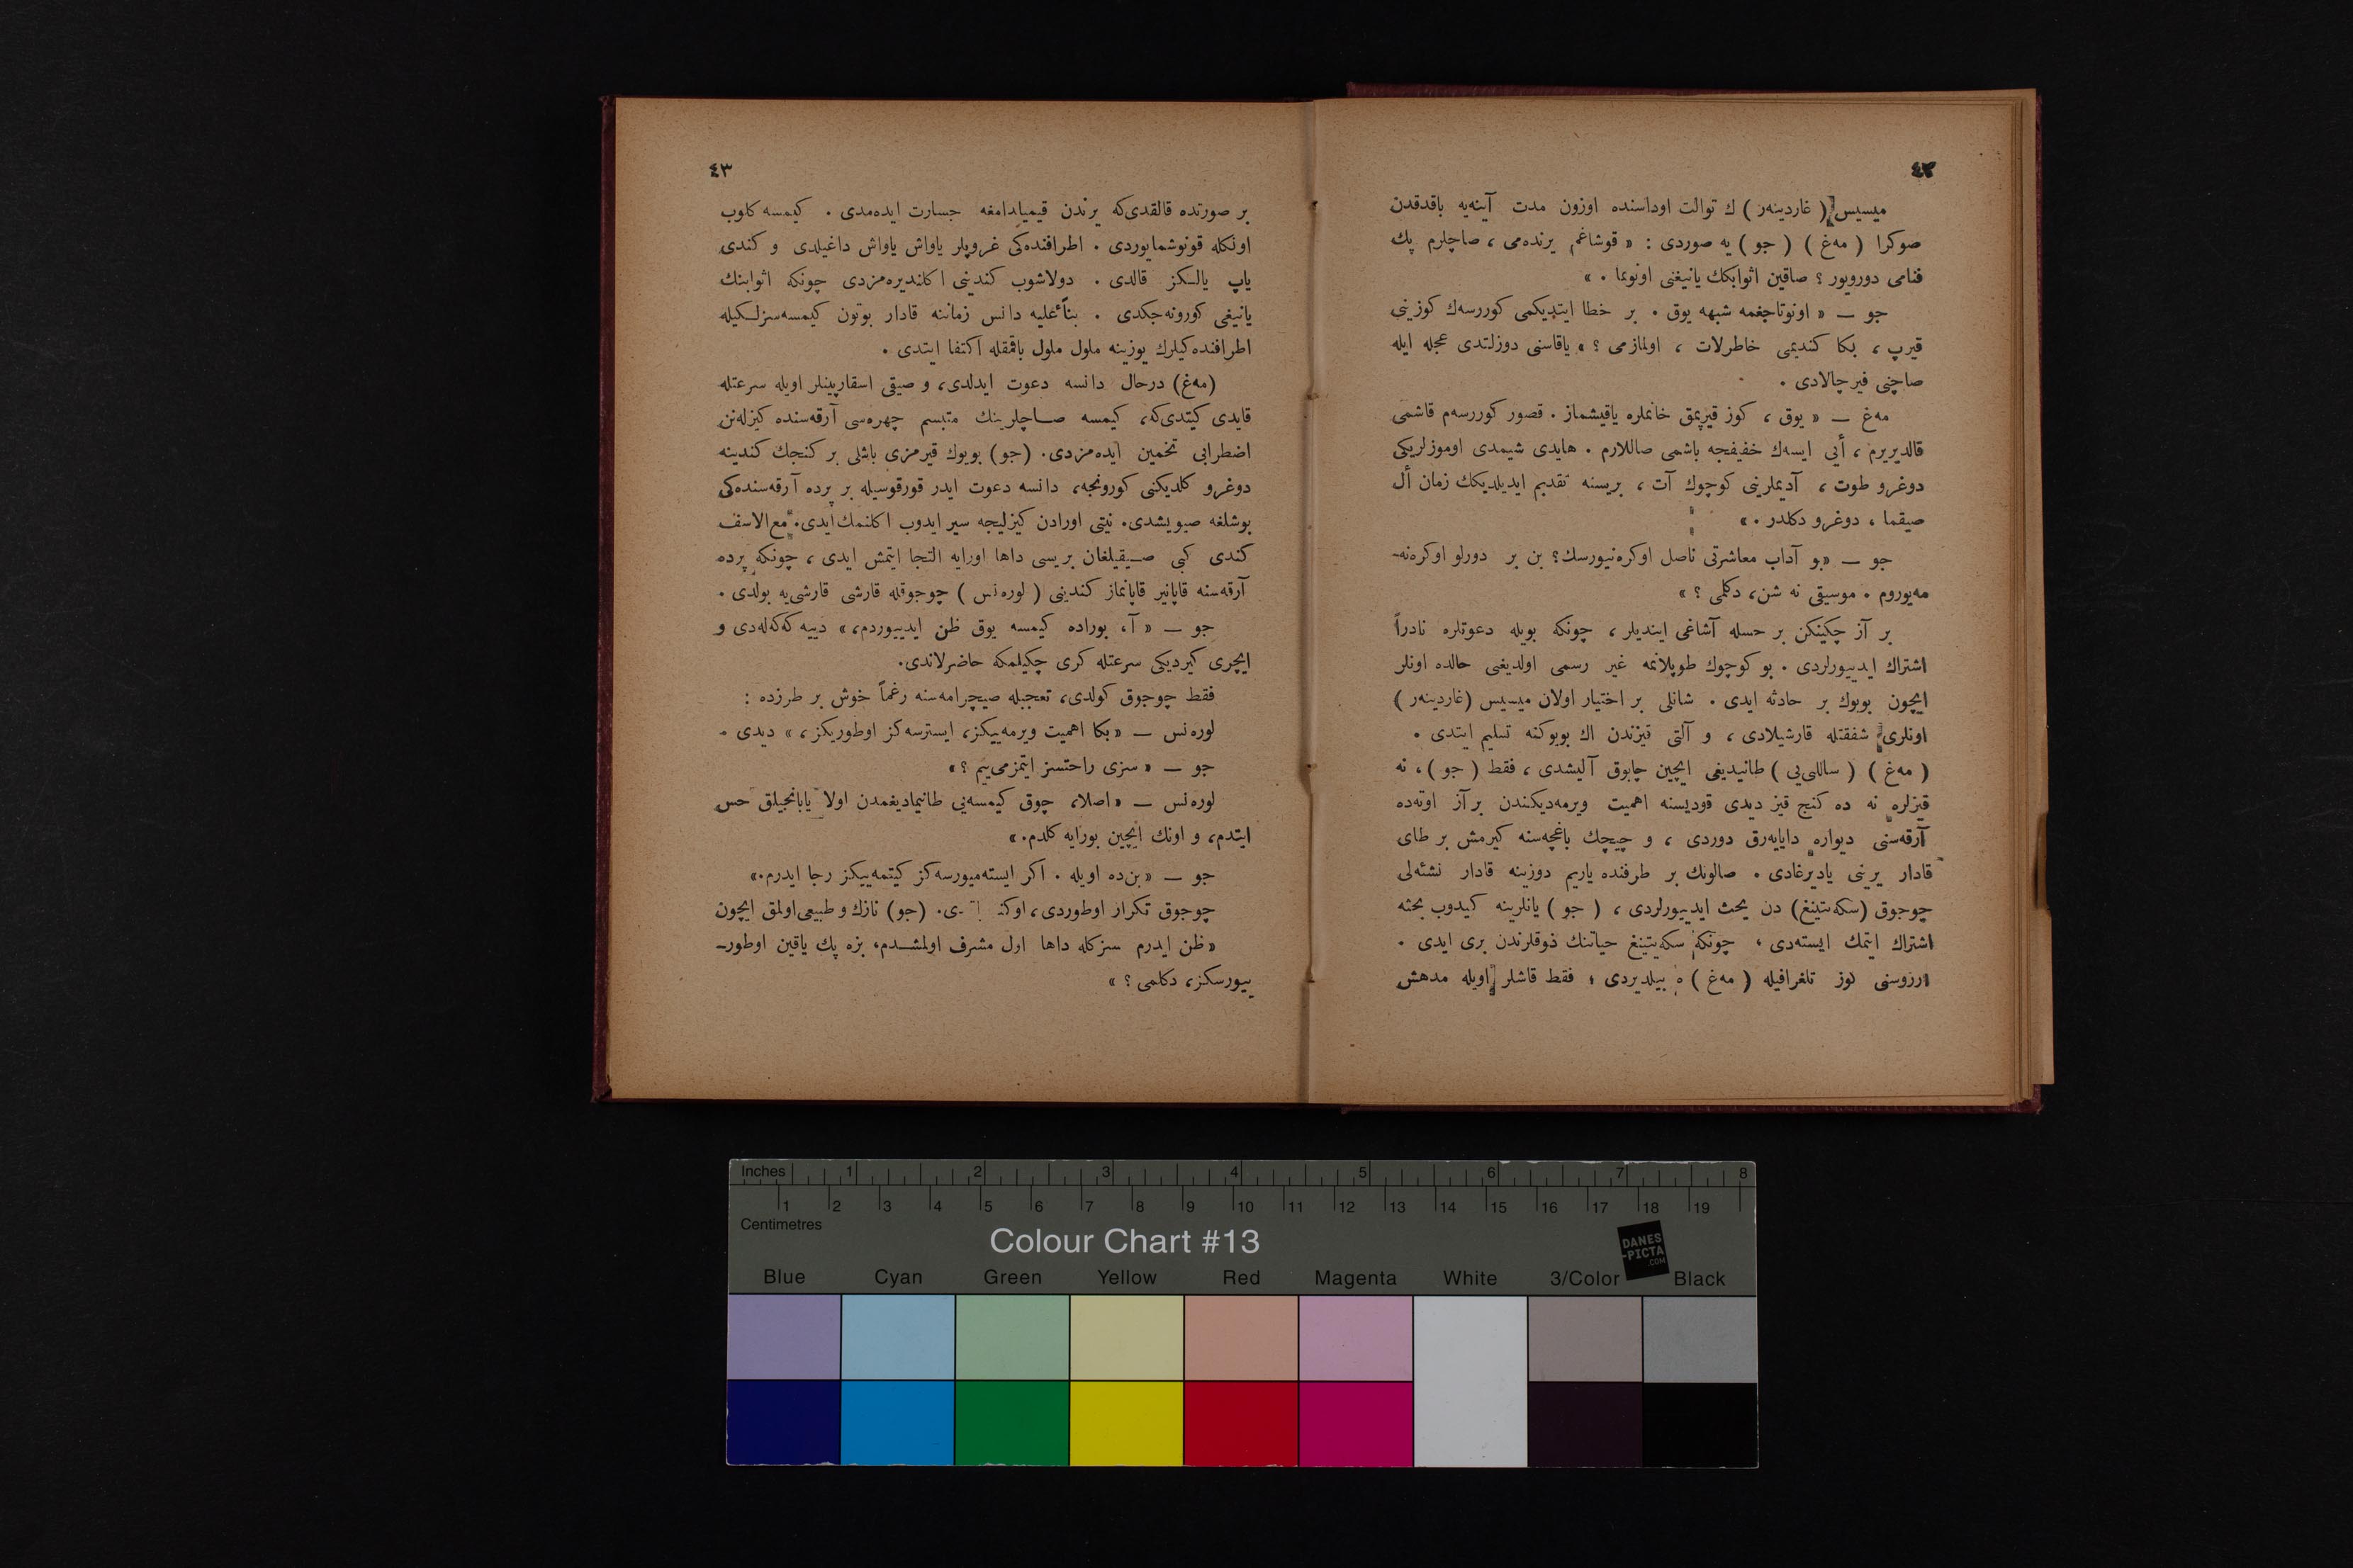 ٤٢
میسیس ( غاردینەر ) ك توالت اوداسنده اوزون مدت آینه‌یه باقدقدن
صوكرا ( مەغ ) ( جو ) یه صوردی : « قوشاغم یرنده‌می ، صاچلرم پك
فنامی دورویور ؟ صاقین اثوابكك یانیغنی اونوتما . »
جو — « اونوتاجغمه شبهه یوق . بر خطا ایتدیكمی كوررسه‌ك كوزینی
قیرپ ، بكا كندیمی خاطرلات ، اولمازمی ؟ » یاقاسنی دوزلتدی عجله ایله
صاچنی فیرچالادی .
مەغ — « یوق ، كوز قیرپمق خانملره یاقیشماز . قصور كوررسه‌م قاشمی
قالدیریرم ، أیی ایسه‌ك خفیفجه باشمی صاللارم . هایدی شیمدی اوموزلریكی
دوغرو طوت ، آدیملرینی كوچوك آت ، بریسنه تقدیم ایدیلدیكك زمان أل
صیقما ، دوغرو دكلدر . »
جو — «بو آداب معاشرتی ناصل اوكره‌نیورسك؟ بن بر دورلو اوكره‌نه-
مه‌یوروم . موسیقی نه شن، دكلمی ؟ »
بر آز چكینكن بر حسله آشاغی ایندیلر ، چونكه بویله دعوتلره نادراً
اشتراك ایدییورلردی . بو كوچوك طوپلانمه غیر رسمی اولدیغی حالده اونلر
ایچون بویوك بر حادثه ایدی . شانلی بر اختیار اولان میسیس (غاردینەر )
اونلری شفقتله قارشیلادی ، و آلتی قیزندن اك بویوكنه تسلیم ایتدی .
( مەغ ) ( ساللی‌یی ) طانیدیغی ایچین چابوق آلیشدی ، فقط ( جو ) ، نه
قیزلره نه ده كنج قیز دیدی قودیسنه اهمیت ویرمه‌دیكندن بر آز اوته‌ده
آرقه‌سنی دیواره دایایه‌رق دوردی ، و چیچك باغچه‌سنه كیرمش بر طای
قادار یرینی یادیرغادی . صالونك بر طرفنده یاریم دوزینه قادار نشئه‌لی
چوجوق (سكه‌تینغ) دن بحث ایدییورلردی ، ( جو ) یانلرینه كیدوب بحثه
اشتراك ایتمك ایسته‌دی ؛ چونكه سكه‌یتینغ حیاتنك ذوقلرندن بری ایدی .
ارزوسنی كوز تلغرافیله ( مەغ ) ه بیلدیردی ؛ فقط قاشلر اویله مدهش
٤٣
بر صورتده قالقدی‌كه یرندن قیمیلدامغه جسارت ایده‌مدی . كیمسه كلوب
اونكله قونوشمایوردی . اطرافنده‌كی غروپلر یاواش یاواش داغیلدی و كندی
یاپ یالكز قالدی . دولاشوب كندینی اكلندیره‌مزدی چونكه اثوابنك
یانیغی كورونه‌جكدی . بنأعلیه دانس زماننه قادار بوتون كیمسه‌سزلكیله
اطرافنده‌كیلرك یوزینه ملول ملول باقمقله اكتفا ایتدی .
(مەغ) درحال دانسه دعوت ایدلدی، و صیقی اسقارپینلر اویله سرعتله
قایدی كیتدی‌كه، كیمسه صاچلرینك متبسم چهره‌سی آرقه‌سنده كیزله‌نن
اضطرابی تخمین ایده‌مزدی. (جو) بویوك قیرمزی باشلی بر كنجك كندینه
دوغرو كلدیكنی كورونجه، دانسه دعوت ایدر قورقوسیله بر پرده آرقه‌سنده‌كی
بوشلغه صیویشدی. نیتی اورادن كیزلیجه سیر ایدوب اكلنمك‌ایدی. مع‌الاسف
كندی كبی صیقیلغان بریسی داها اورایه التجا ایتمش ایدی ، چونكه پرده
آرقه‌سنه قاپانیر قاپانماز كندینی ( لوره‌نس ) چوجوقله قارشی قارشی‌یه بولدی .
جو — « آ، بوراده كیمسه یوق ظن ایدییوردم، » دییه كه‌كه‌له‌دی و
ایچری كیردیكی سرعتله كری چكیلمكه حاضرلاندی.
فقط چوجوق كولدی، تعجبله صیچرامه‌سنه رغماً خوش بر طرزده :
لوره‌نس — « بكا اهمیت ویرمه‌ییكز، ایسترسه‌كز اوطوریكز ، » دیدی .
جو — « سزی راحتسز ایتمزمی‌یم ؟ »
لوره‌نس — « اصلا، چوق كیمسه‌یی طانیمادیغمدن اولا یابانجیلق حس
ایتدم، و اونك ایچین بورایه كلدم. »
جو — « بن‌ده اویله . اكر ایسته‌میورسه‌كز كیتمه‌ییكز رجا ایدرم.»
چوجوق تكرار اوطوردی، (جو) نازك و طبیعی‌اولمق ایچون
« ظن ایدرم سزكله داها اول مشرف اولمشدم، بزه پك یاقین اوطور-
ییورسكز، دكلمی ؟ »
Inches 1 2 3 4 5 6 7 8
1 2 3 4 5 6 7 8 9 10 11 12 13 14 15 16 17 18 19
Centimetres
Colour Chart #13
DANES
-PICTA
.COM
Blue Cyan Green Yellow Red Magenta White 3/Color Black